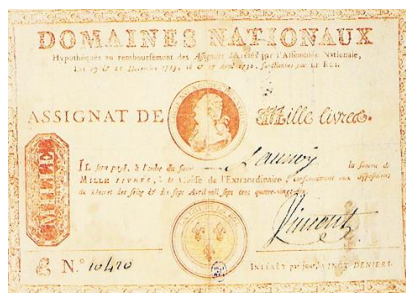 DOMAINES NATIONAUX
Hypothéqués au remboursement des Assignats décrétés par l'Assemblée Nationale,
Les 19 & 21 Décembre 1789, 16 & 17 Avril 1790, sanctionnés par LE ROI.
ASSIGNAT DE Mille livres.
MILLE
IL sera payé, à l'ordre du sieur
la somme de
MILLE LIVRES, à la Caisse de l'Extraordinaire, conformément aux dispositions
du Décret des seize & dix-sept Avril mil sept cent quatre-vingt-dix.
N.º 10420
DENIERS.